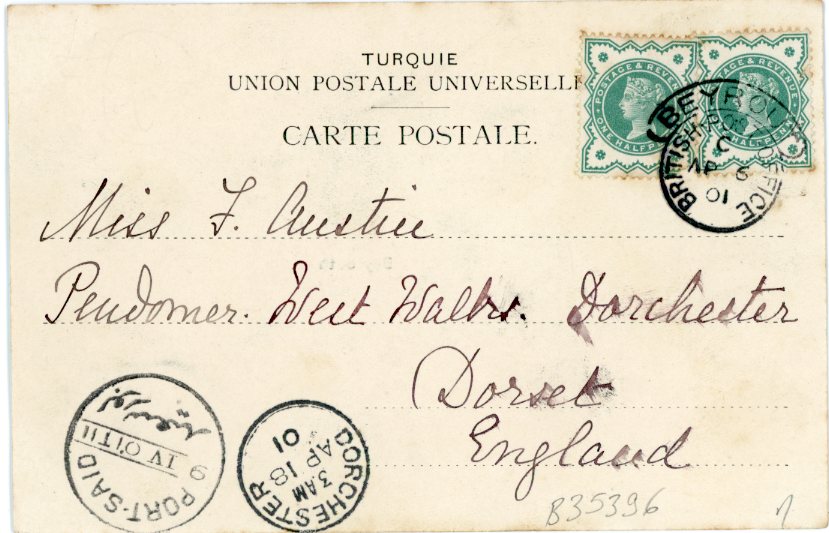 TURQUIE
UNION POSTALE UNIVERSELLE
CARTE POSTALE.
POSTAGE & REVENUE
ONE HALFPENNY
POSTAGE & REVENUE
HALFPENNY
BRITISH POST OFFICE
BEYROUT
C
AP 6
01
Miss F. Austin
Pendomer. West Walks. Dorchester
Dorset
England
بورسعيد
9 IV 01 T II
PORT-SAID
DORCHESTER
3 AM
AP 18
01
B35396